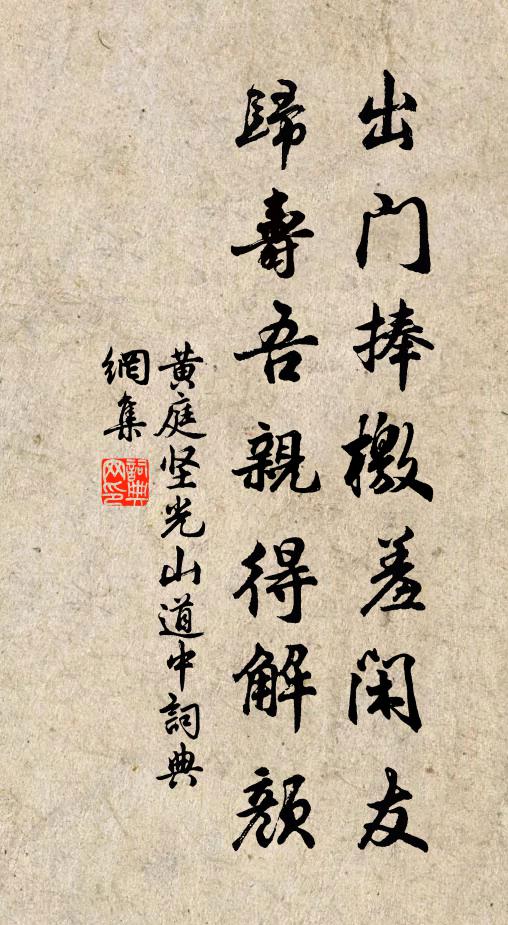 出门捧檄羞閑友
歸壽吾親得解顏
黄庭坚光山道中詞典
網集
詞典
网印